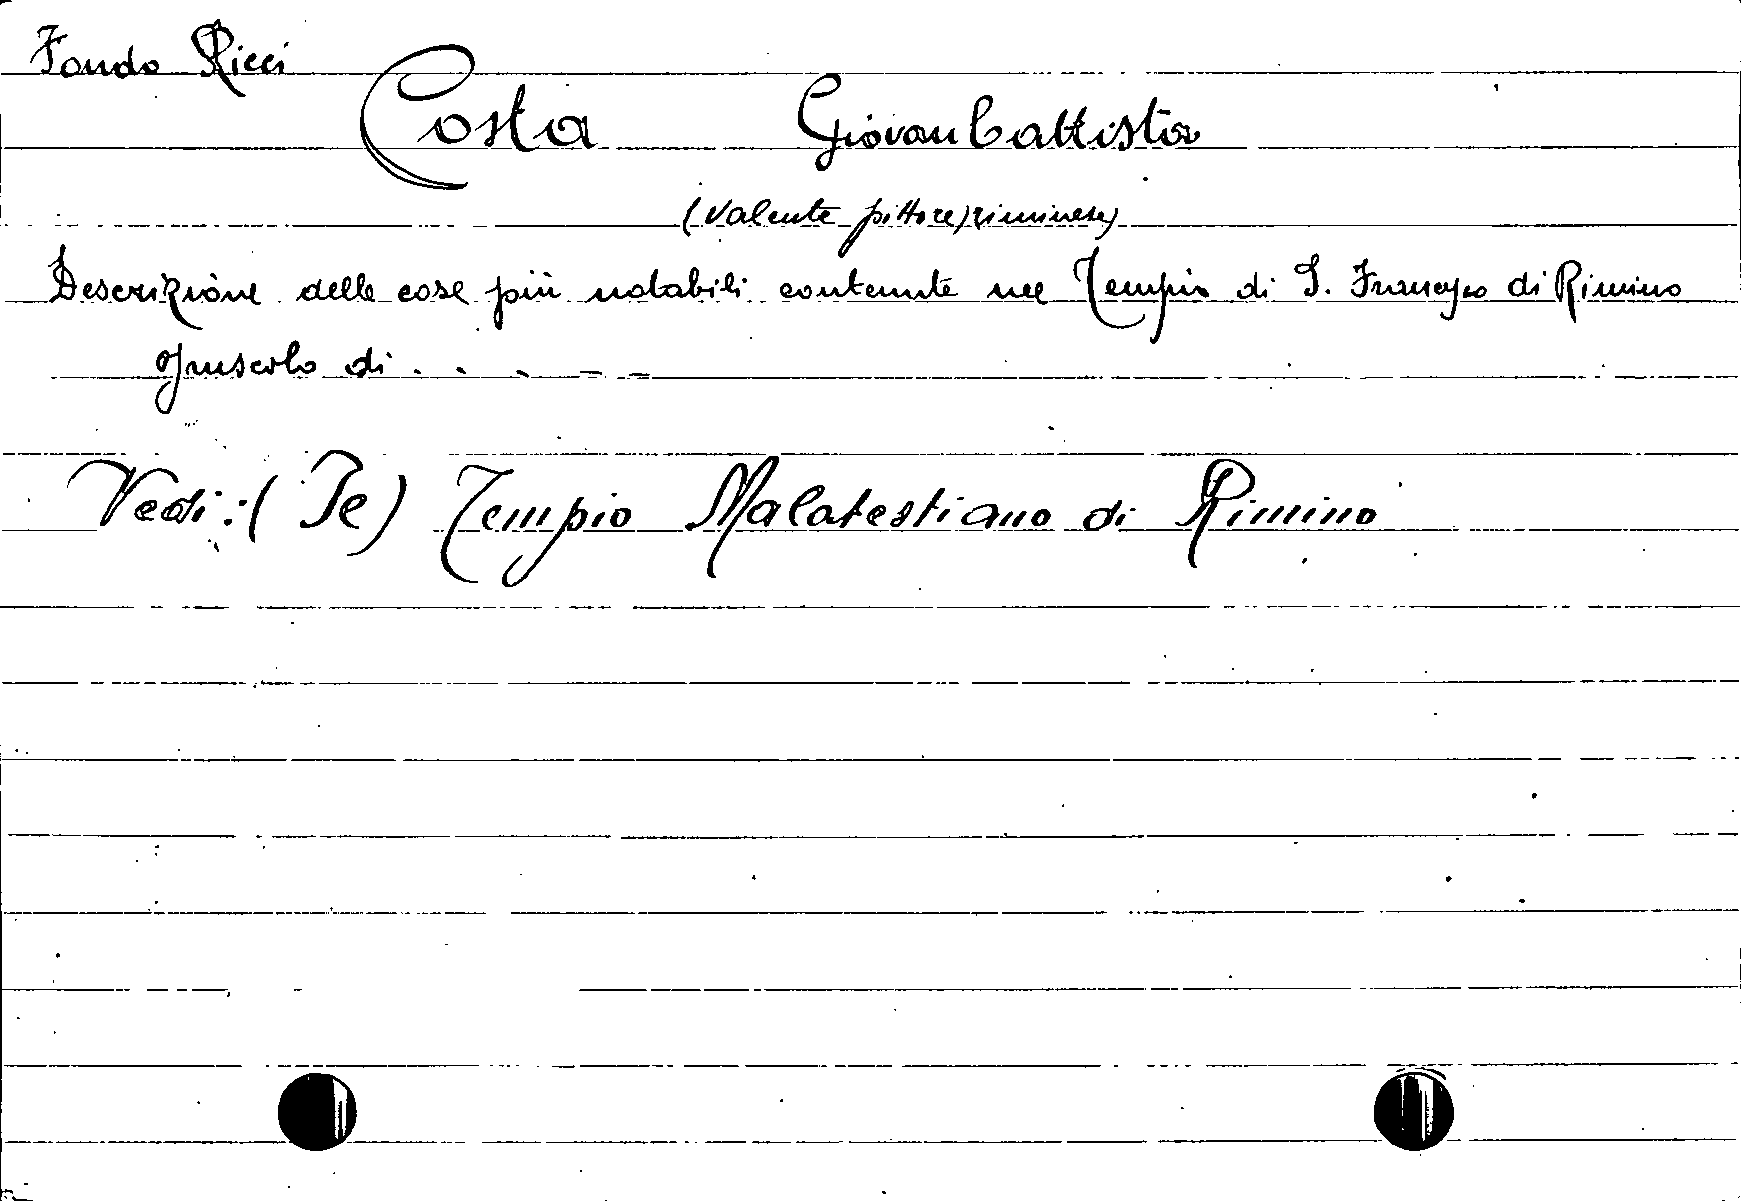 Fondo Ricci
Costa Giovanbattista
(valente pittore riminese)
Descrizione delle cose più notabili contenute nel Tempio di S. Francesco di Rimino
Opuscolo di . . . . .
Vedi: (Te) Tempio Malatestiano di Rimino